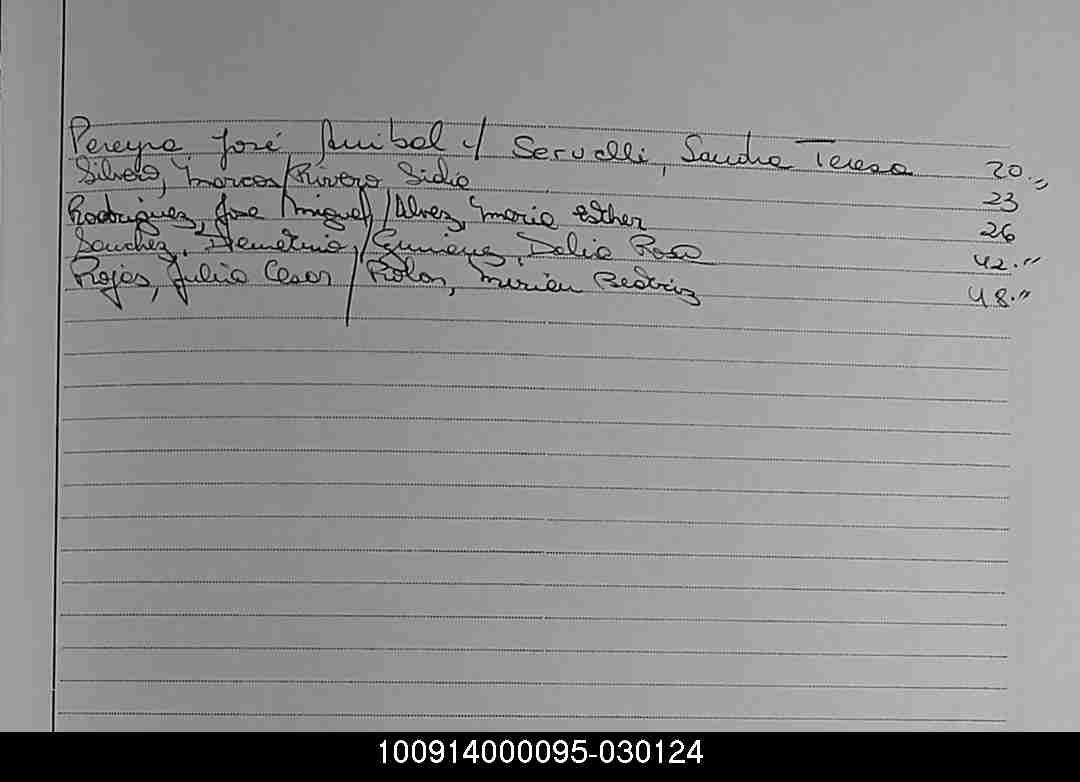 Pereyra José Anibal c/ Servelli, Sandra Teresa 20.,,
Silvero, Marcos/Rivero, Sidia 23
Rodriguez, Jose Miguel/Alvez, Maria Esther 26
Sanchez, Demetrio,/Gimenez, Delia Rosa 42.''
Rojas, Julio Cesar / Rolon, Mirian Beatriz 48.''
100914000095-030124